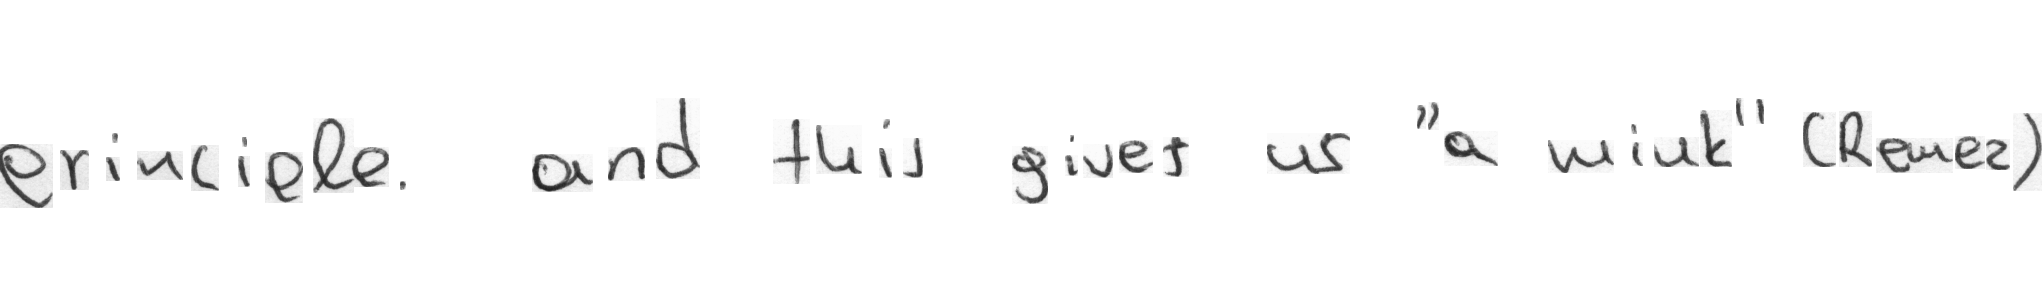 principle. and this gives us "a wink" (Remez)